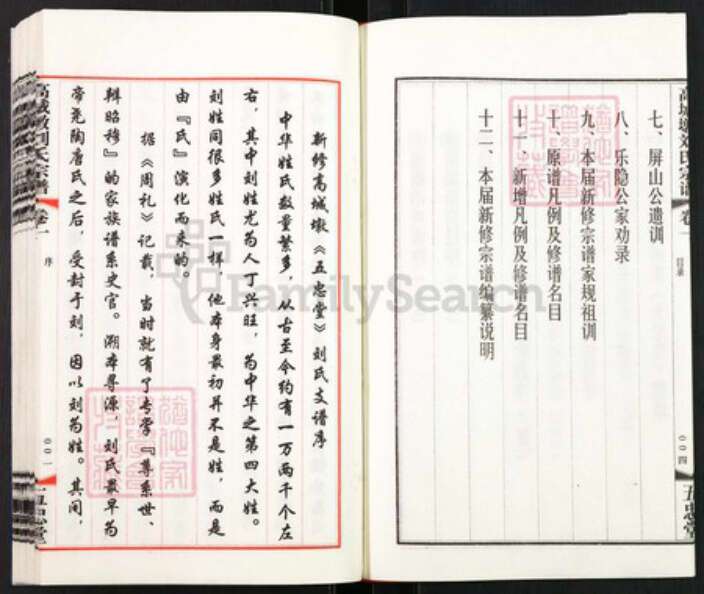 高城墩刘氏宗谱
卷一
目录
〇〇四
五忠堂
七、屏山公遗训
八、乐隐公家劝录
九、本届新修宗谱家规祖训
十、原谱凡例及修谱名目
十一、新增凡例及修谱名目
十二、本届新修宗谱编纂说明
新修高城墩《五忠堂》刘氏支谱序
中华姓氏数量繁多，从古至今约有一万两千个左
右，其中刘姓尤为人丁兴旺，为中华之第四大姓。
刘姓同很多姓氏一样，他本身最初并不是姓，而是
由『氏』演化而来的。
据《周礼》记载，当时就有了专掌『尊系世、
辩昭穆』的家族谱系史官。溯本寻源，刘氏最早为
帝尧陶唐氏之后，受封于刘，因以刘为姓。其间，
高城墩刘氏宗谱
卷一
序
〇〇一
五忠堂
FamilySearch